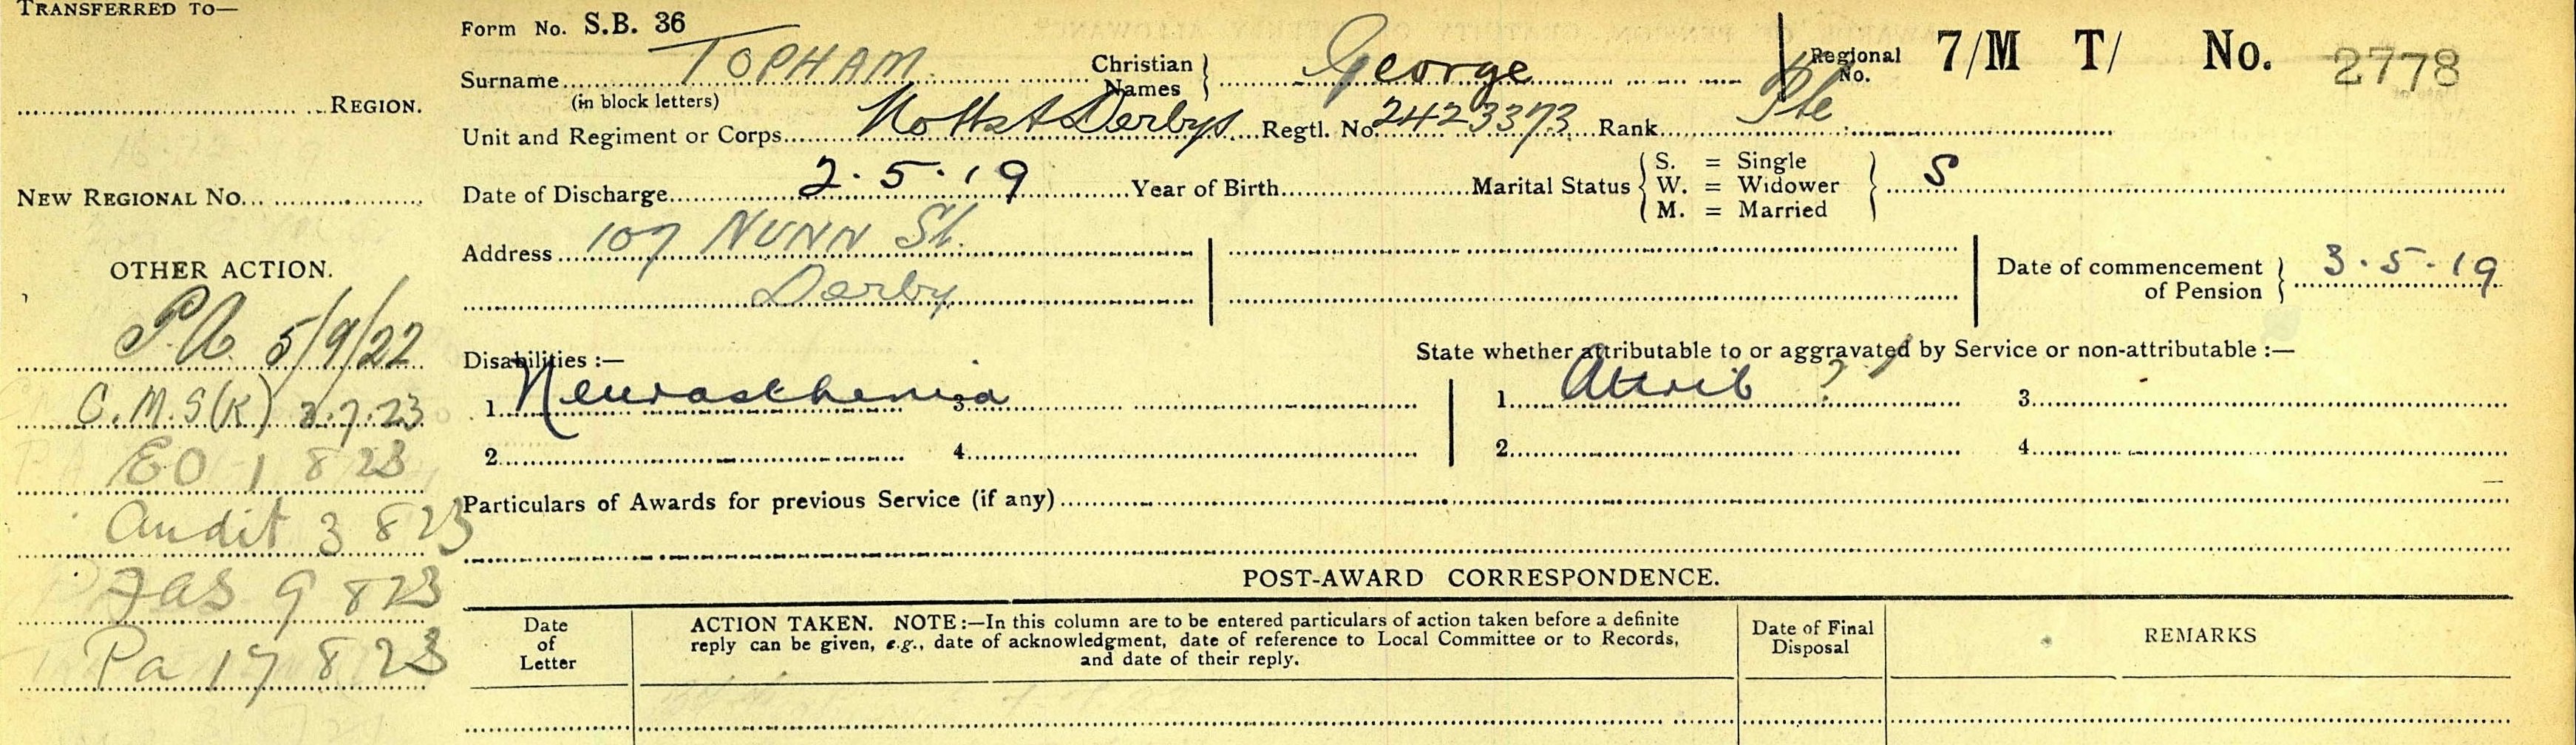 TRANSFERRED TO—
REGION.
NEW REGIONAL No.
OTHER ACTION.
PA 5/9/22
C.M.S(K) 3.7.23
EO 1 8 23
Audit 3 8 23
9 8 23
Pa 17 8 23
Form No. S.B. 36
Surname TOPHAM Christian Names George Regional No. 7/M T/ No. 2778
(in block letters)
Unit and Regiment or Corps Notts & Derbys Regtl. No. 2423373 Rank Pte
Date of Discharge 2.5.19 Year of Birth Marital Status S. = Single S
W. = Widower
M. = Married
Address 107 NUNN St.
Derby
Date of commencement of Pension 3.5.19
Disabilities :— State whether attributable to or aggravated by Service or non-attributable :—
1. Neurasthenia 3. 1. Attrib ? 3.
2. 4. 2. 4.
Particulars of Awards for previous Service (if any)
POST-AWARD CORRESPONDENCE.
Date of Letter
ACTION TAKEN. NOTE :—In this column are to be entered particulars of action taken before a definite
reply can be given, e.g., date of acknowledgment, date of reference to Local Committee or to Records,
and date of their reply.
Date of Final Disposal
REMARKS